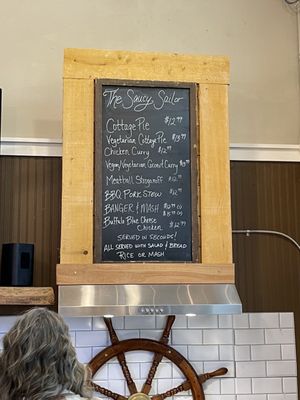 The Saucy Sailor
Cottage Pie $12.99
Vegetarian Cottage Pie $13.99
Chicken Curry $12.99
Vegan/Vegetarian Coconut Curry
Meatball Stroganoff $12.99
BBQ Pork Stew $12.99
Banger & Mash
Buffalo Blue Cheese
Chicken $12.99
Served in seconds!
All served with salad & bread
Rice or Mash